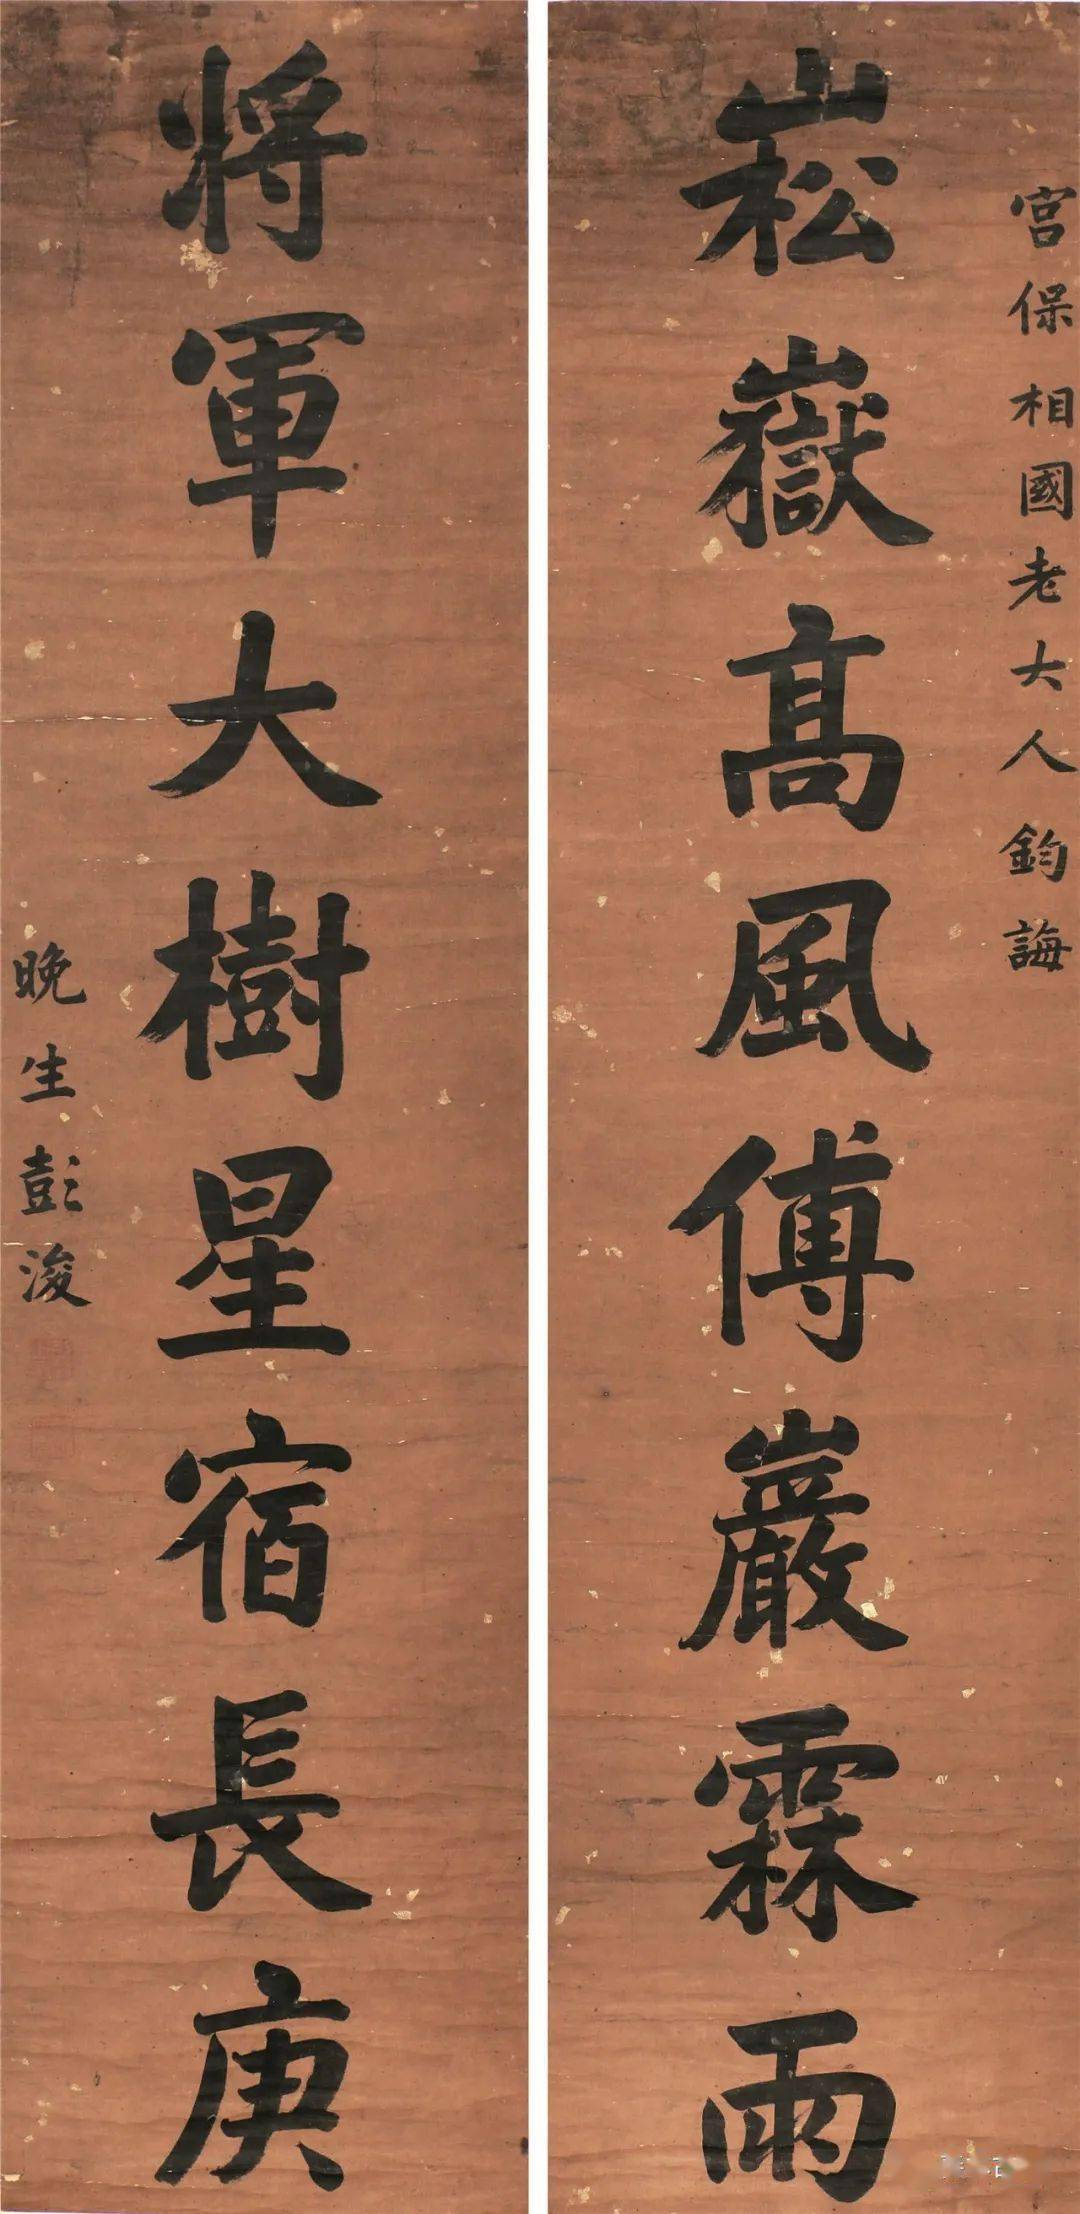 宮保相國老大人鈞誨
崧嶽高風傅巖霖雨
將軍大樹星宿長庚
晚生彭浚